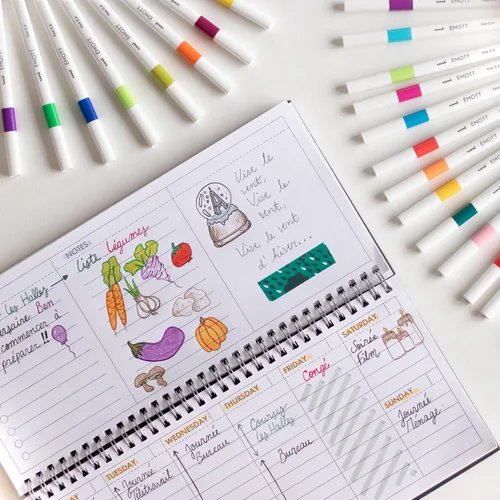 EMOTT
EMOTT
EMOTT
EMOTT
EMOTT
uni EMOTT
uni EMOTT
uni EMOTT
uni EMOTT
NOTES
Liste Légumes
Les Halles
Ben
commencer à
préparer !!
Vive le
vent,
Vive le
vent,
Vive le vent
d'hiver...
TUESDAY
Journée
Télétravail
WEDNESDAY
Journée
Bureau
THURSDAY
Courses
Les Halles
Bureau
FRIDAY
Congé
SATURDAY
Soirée
Film
SUNDAY
Journée
Ménage